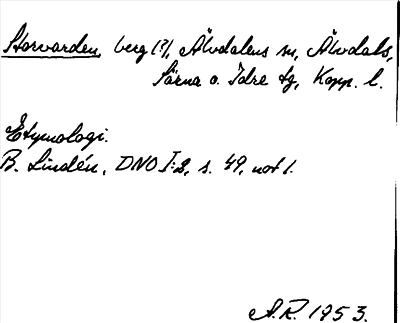 Storvarden, berg (?), Älvdalens sn, Älvdals,
Särna o. Idre tg, Kopp. l.
Etymologi.
B. Lindén, DNO I:2, s. 49, not 1.
A.R. 1953.